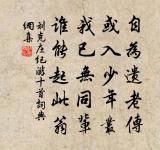 自為遺老傳
或入少年叢
我已無同輩
誰能起此翁
刘克庄紀游十首詞典
網集